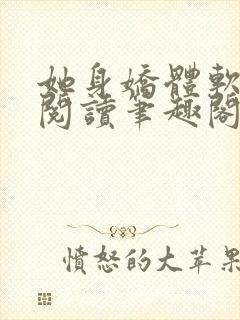 她身嬌體軟
閱讀筆趣閣
憤怒的大苹果